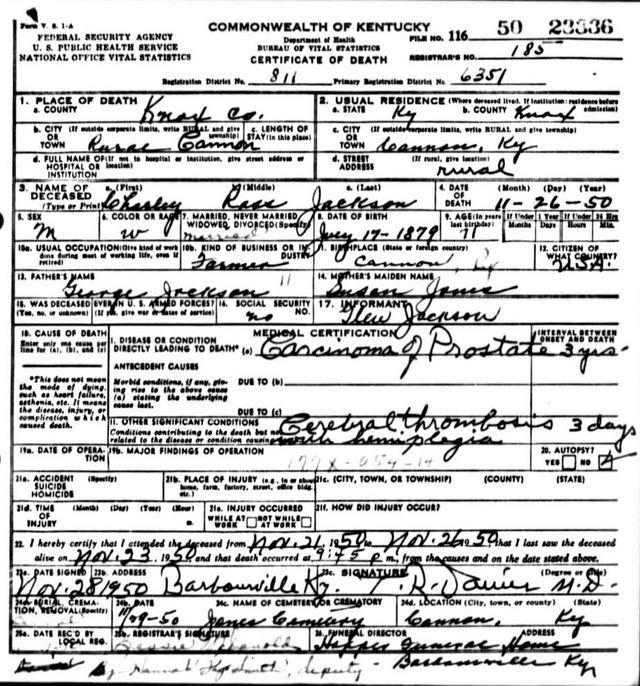 Form V. S. 1-A
FEDERAL SECURITY AGENCY
U. S. PUBLIC HEALTH SERVICE
NATIONAL OFFICE VITAL STATISTICS
COMMONWEALTH OF KENTUCKY
Department of Health
BUREAU OF VITAL STATISTICS
CERTIFICATE OF DEATH
FILE NO. 116 50 23336
REGISTRAR'S NO. 185
Registration District No. 811 Primary Registration District No. 6351
1. PLACE OF DEATH
a. COUNTY Knox Co.
2. USUAL RESIDENCE (Where deceased lived. If institution: residence before admission)
a. STATE Ky b. COUNTY Knox
b. CITY (If outside corporate limits, write RURAL and give township) OR TOWN Rural Cannon
c. LENGTH OF STAY (in this place)
c. CITY (If outside corporate limits, write RURAL and give township) OR TOWN Cannon, Ky
d. FULL NAME OF (If not in hospital or institution, give street address or location) HOSPITAL OR INSTITUTION
d. STREET ADDRESS (If rural, give location) rural
3. NAME OF DECEASED (Type or Print) a. (First) Charley (Middle) Ross c. (Last) Jackson
4. DATE OF DEATH (Month) (Day) (Year) 11-26-50
5. SEX M
6. COLOR OR RACE W
7. MARRIED, NEVER MARRIED, WIDOWED, DIVORCED (Specify) married
8. DATE OF BIRTH 17-1879
9. AGE (In years last birthday) 71 If Under 1 Year Months Days If Under 24 Hrs Hours Min.
10a. USUAL OCCUPATION (Give kind of work done during most of working life, even if retired)
10b. KIND OF BUSINESS OR INDUSTRY Farmer
11. BIRTHPLACE (State or foreign country) Cannon, Ky
12. CITIZEN OF WHAT COUNTRY? U.S.A.
13. FATHER'S NAME George Jackson
14. MOTHER'S MAIDEN NAME Susan Jones
15. WAS DECEASED EVER IN U. S. ARMED FORCES? (Yes, no, or unknown) (If yes, give war or dates of service)
16. SOCIAL SECURITY NO. no
17. INFORMANT Jackson
18. CAUSE OF DEATH
Enter only one cause per line for (a), (b), and (c)
*This does not mean the mode of dying, such as heart failure, asthenia, etc. It means the disease, injury, or complication which caused death.
MEDICAL CERTIFICATION
INTERVAL BETWEEN ONSET AND DEATH
I. DISEASE OR CONDITION DIRECTLY LEADING TO DEATH* (a) Carcinoma of Prostate 3 yrs.
ANTECEDENT CAUSES
Morbid conditions, if any, giving rise to the above cause (a) stating the underlying cause last.
DUE TO (b)
DUE TO (c)
II. OTHER SIGNIFICANT CONDITIONS
Conditions contributing to the death but not related to the disease or condition causing
Cerebral thrombosis 3 days
with hemiplegia
19a. DATE OF OPERATION
19b. MAJOR FINDINGS OF OPERATION
177X-054-14
20. AUTOPSY? YES NO
21a. ACCIDENT SUICIDE HOMICIDE (Specify)
21b. PLACE OF INJURY (e.g., in or about home, farm, factory, street, office bldg. etc.)
21c. (CITY, TOWN, OR TOWNSHIP) (COUNTY) (STATE)
21d. TIME OF INJURY (Month) (Day) (Year) (Hour)
21e. INJURY OCCURRED WHILE AT WORK NOT WHILE AT WORK
21f. HOW DID INJURY OCCUR?
22. I hereby certify that I attended the deceased from Nov. 21, 1950 to Nov. 26, 1950 that I last saw the deceased
alive on Nov. 23, 1950 and that death occurred at 9:45 p m., from the causes and on the date stated above.
23a. DATE SIGNED Nov. 28 1950
23b. ADDRESS Barbourville Ky.
23c. SIGNATURE R. Davies M. D. (Degree or title)
24a. BURIAL, CREMATION, REMOVAL (Specify)
24b. DATE 11/29-50
24c. NAME OF CEMETERY OR CREMATORY Jones Cemetery
24d. LOCATION (City, town, or county) (State) Cannon, Ky
25a. DATE REC'D BY LOCAL REG.
25b. REGISTRAR'S SIGNATURE
Hannah deputy
26. FUNERAL DIRECTOR ADDRESS
Hopper Funeral Home
Barbourville Ky.